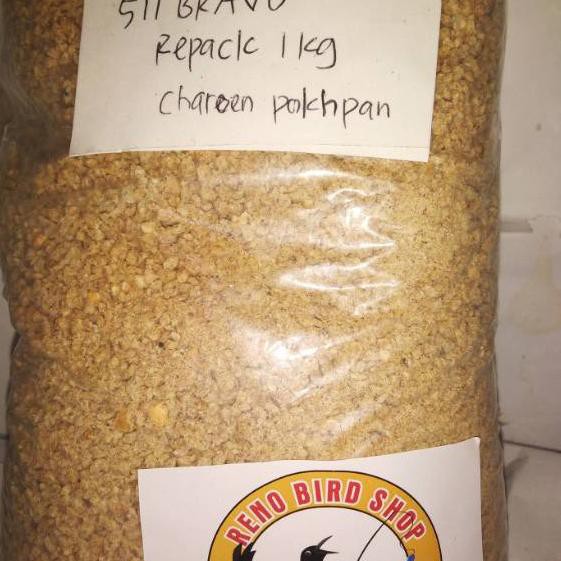 511 BRAVO
Repack 1 kg
charoen pokhpan
RENO BIRD SHOP